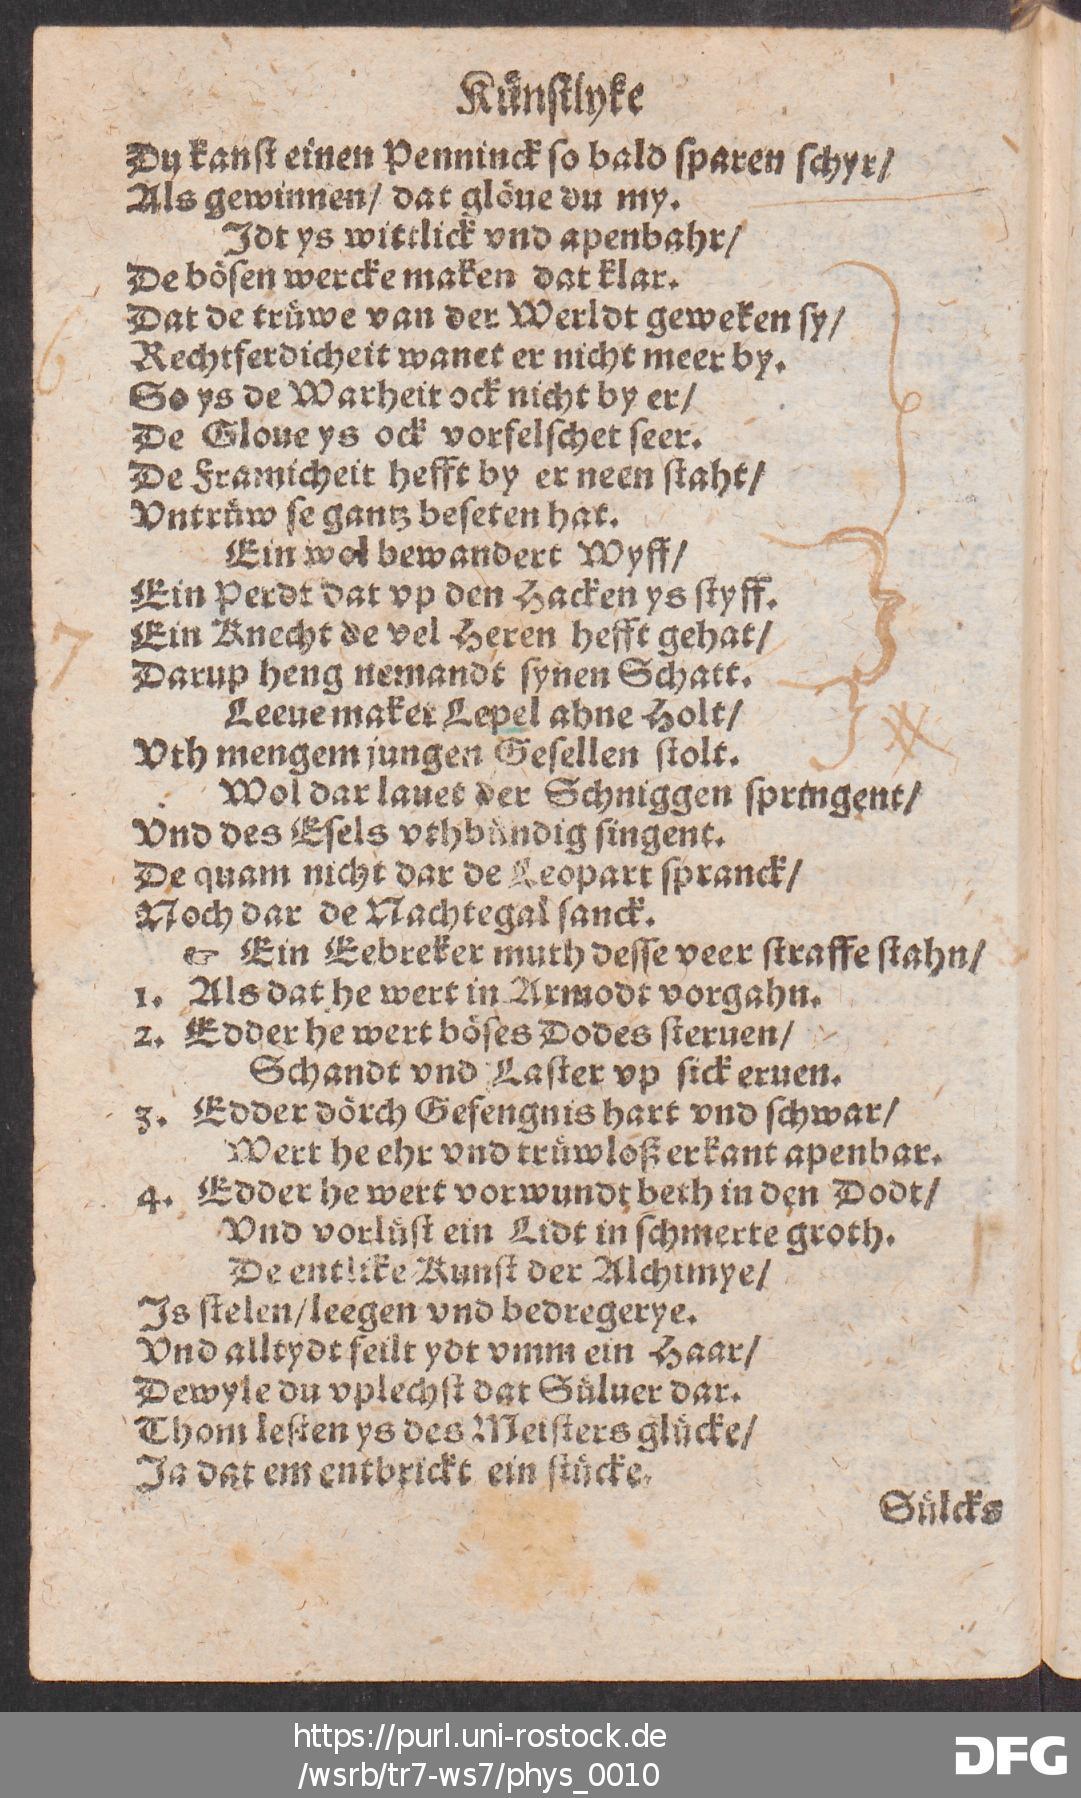 Kuͤnstlyke
Du kanst einen Penninck so bald sparen schyr/
Als gewinnen/ dat gloͤue du my.
Idt ys wittlick vnd apenbahr/
De boͤsen wercke maken dat klar.
Dat de truͤwe van der Werldt geweken sy/
Rechtferdicheit wanet er nicht meer by.
So ys de Warheit ock nicht by er/
De Gloue ys ock vorfelschet seer.
De Framicheit hefft by er neen staht/
Vntruͤw se gantz beseten hat.
Ein wol bewandert Wyff/
Ein Perdt dat vp den Hacken ys styff.
Ein Knecht de vel Heren hefft gehat/
Darup heng nemandt synen Schatt.
Leeue maker Lepel ahne Holt/
Vth mengem jungen Gesellen stolt.
Wol dar lauet der Schniggen springent/
Vnd des Esels vthbuͤndig singent.
De quam nicht dar de Leopart spranck/
Noch dar de Nachtegal sanck.
☞ Ein Eebreker muth desse veer straffe stahn/
1. Als dat he wert in Armodt vorgahn.
2. Edder he wert boͤses Dodes steruen/
Schandt vnd Laster vp sick eruen.
3. Edder doͤrch Gefengnis hart vnd schwar/
Wert he ehr vnd truͤwloß erkant apenbar.
4. Edder he wert vorwundt beth in den Dodt/
Vnd vorluͤst ein Lidt in schmerte groth.
De entlike Kunst der Alchimye/
Is stelen/ leegen vnd bedregerye.
Vnd alltydt feilt ydt vmm ein Haar/
Dewyle du vplechst dat Suͤluer dar.
Thom lesten ys des Meisters gluͤcke/
Ja dat em entbrickt ein stuͤcke.
Suͤlcks
https://purl.uni-rostock.de
/wsrb/tr7-ws7/phys_0010
DFG
6
7